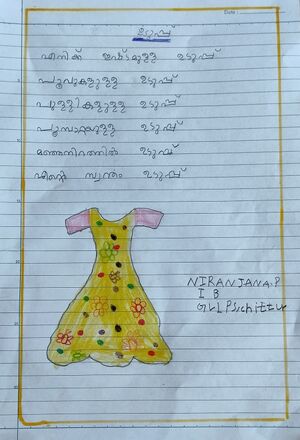 Date :
ഉടുപ്പ്
എനിക്ക് ഇഷ്ടമുള്ള ഉടുപ്പ്
പൂവുകളുള്ള ഉടുപ്പ്
പുള്ളികളുള്ള ഉടുപ്പ്
ഉടുപ്പ്
മഞ്ഞനിറത്തിൽ ഉടുപ്പ്
എന്റെ സ്വന്തം ഉടുപ്പ്
NIRANJANA.P
I B
GLPS